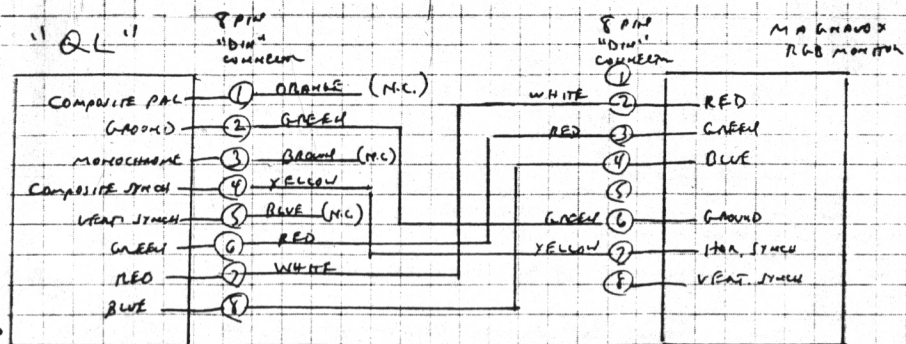 "QL"
8 PIN
"DIN"
CONNECTOR
8 PIN
"DIN"
CONNECTOR
MAGNAVOX
RGB MONITOR
COMPOSITE PAL 1 ORANGE (N.C.)
GROUND 2 GREEN
MONOCHROME 3 BROWN (N.C)
COMPOSITE SYNCH 4 YELLOW
VERT. SYNCH 5 BLUE (N.C.)
GREEN 6 RED
RED 7 WHITE
BLUE 8
1
WHITE 2 RED
RED 3 GREEN
4 BLUE
5
GREEN 6 GROUND
YELLOW 7 HOR. SYNCH
8 VERT. SYNCH